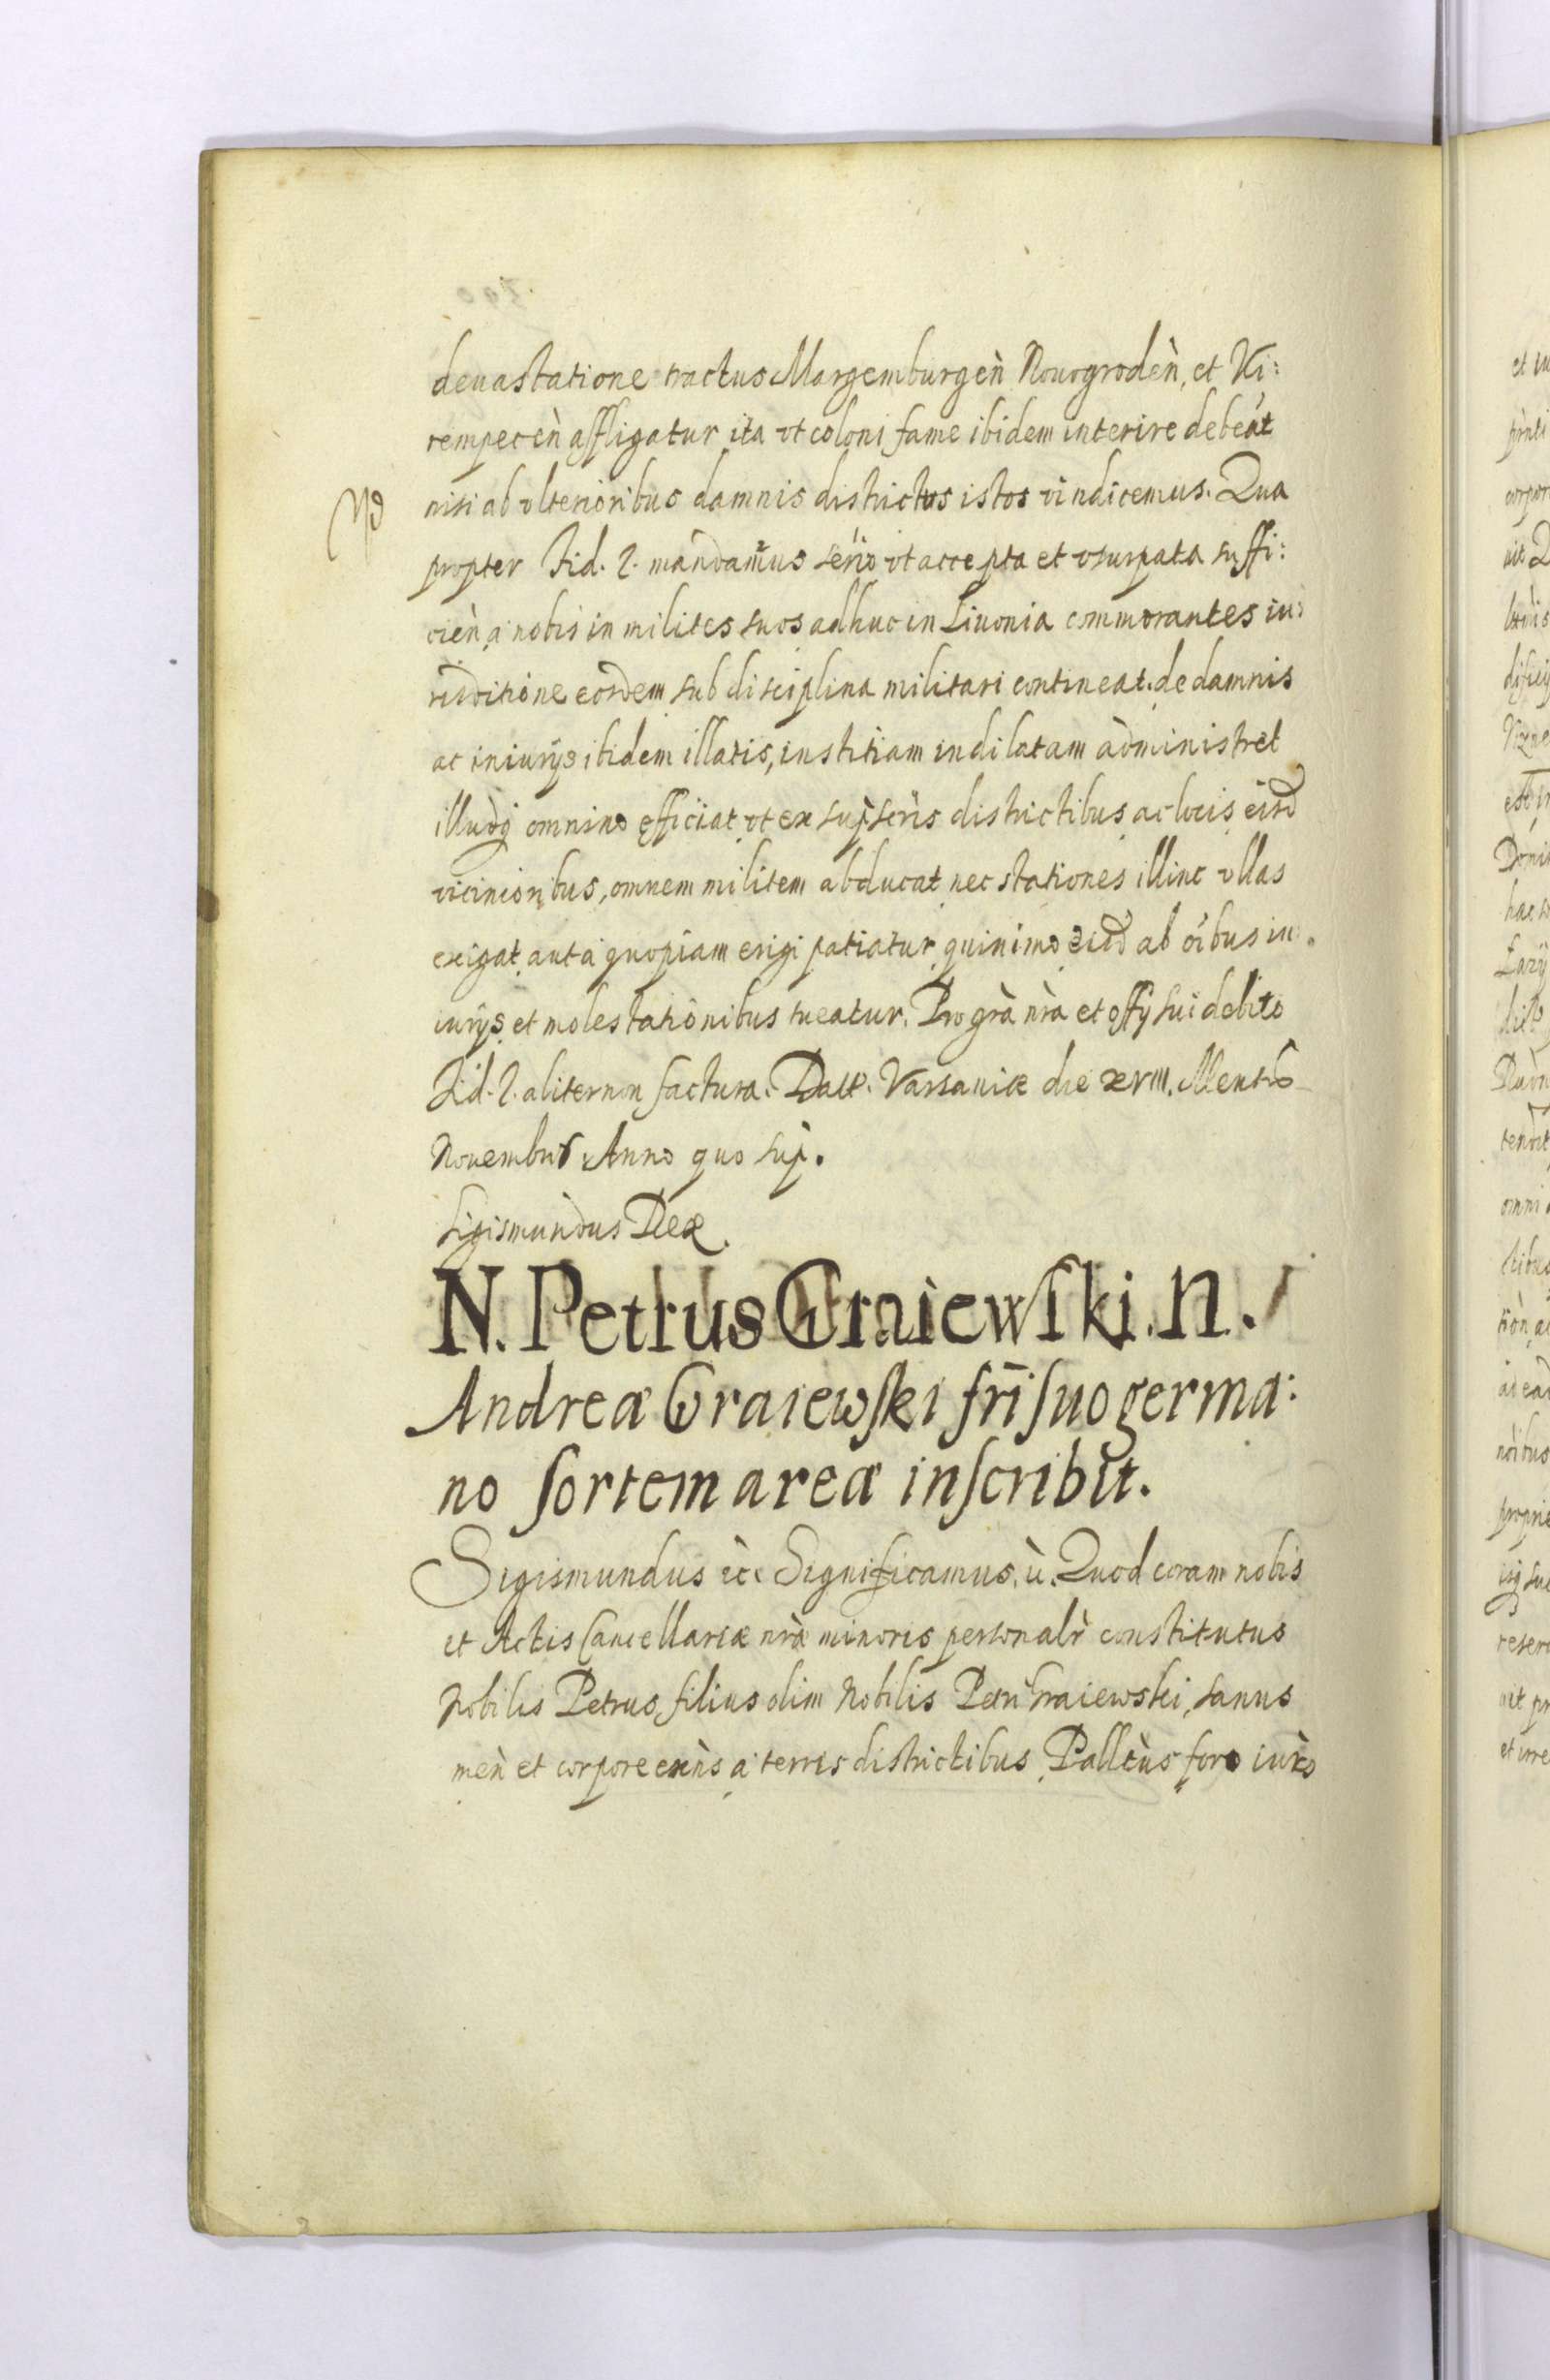 deuastatione tractus Margemburgeǹ Nouogrodeǹ, et Ki:
rempeceǹ affligatur ita vt coloni fame ibidem interire debeāt
nisi ab vlterioribus damnis districtus istos vindicemus. Qua
propter Fid. V. mandamus serio vt accepta et vsurpata suffi:
cieǹ a nobis in milites suos adhuc in Liuonia commorantes iu:
risditione eosdem sub disciplina militari contineat, de damnis
ac iniurijs ibidem illatis, iustitiam indilatam administret
illudq omnino efficiat vt ex supscris districtibus ac locis eisd
vicinioribus, omnem militem abducat nec stationes illinc vllas
exigat aut a quopiam exigi patiatur quinimo eisd ab oibus in:
iurijs et molestationibus tueatur. Pro gra nra et offij sui debito
Fid. V. aliter non factura. Datt. Varsauiæ die xviii. Mensis
Nouembris Anno quo sup.
Sigismundus Rex.
N. Petrus Graiewski. N.
Andreæ Graiewski fri suo germa:
no sortem areæ inscribit.
Sigismundus ic. Significamus. ù. Quod coram nobis
et Actis Cancellariæ nræ minoris personalr constitutus
Nobilis Petrus filius olim Nobilis Petri Graiewski, sanus
meǹ et corpore exǹs a terris districtibus Pallt̀us foro iur̀s